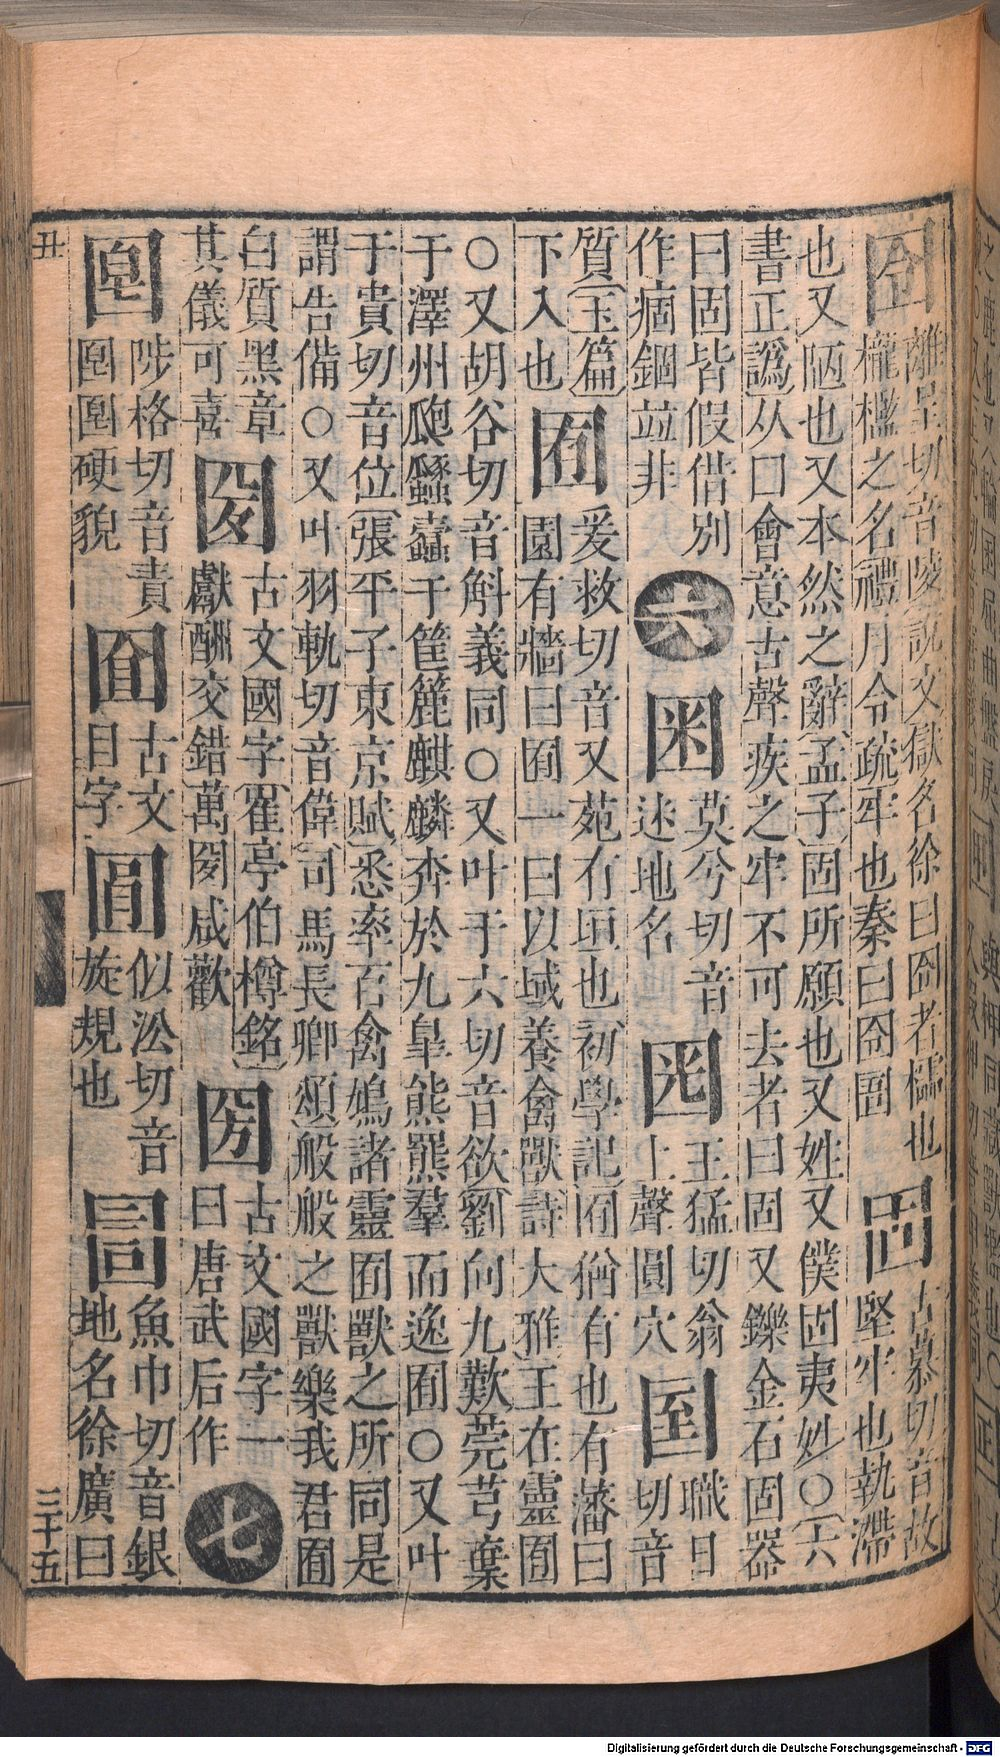 囹 離呈切音陵説文獄名徐曰囹者櫺也
櫳檻之名禮月令疏牢也秦曰囹圄
固 古慕切音故
堅牢也執滯
也又陋也又本然之辭孟子固所願也又姓又僕固夷姓〇六
書正譌从囗會意古聲疾之牢不可去者曰固又鑠金石固器
曰固皆假借別
作痼錮竝非
六
莫兮切音
迷地名
王猛切翁
上聲圓穴
職日
切音
質玉篇
下入也
囿 爰救切音又苑有垣也初學記囿猶有也有藩曰
園有牆曰囿一曰以域養禽獸詩大雅王在靈囿
〇又胡谷切音斛義同〇又叶于六切音欲劉向九歎莞芎棄
于澤州瓟蠡蠹于筐簏麒麟奔於九皐熊羆羣而逸囿〇又叶
于貴切音位張平子東京賦悉率百禽鳩諸靈囿獸之所同是
謂告備〇又叶羽軌切音偉司馬長卿頌般般之獸樂我君囿
白質黑章
其儀可喜
古文國字翟亭伯樽銘
獻酬交錯萬圀咸歡
圀 古文國字一
曰唐武后作
七
陟格切音責
硬貌
古文
目字
似㳂切音
旋規也
魚巾切音銀
地名徐廣曰
丑
三十五
Digitalisierung gefördert durch die Deutsche Forschungsgemeinschaft - DFG